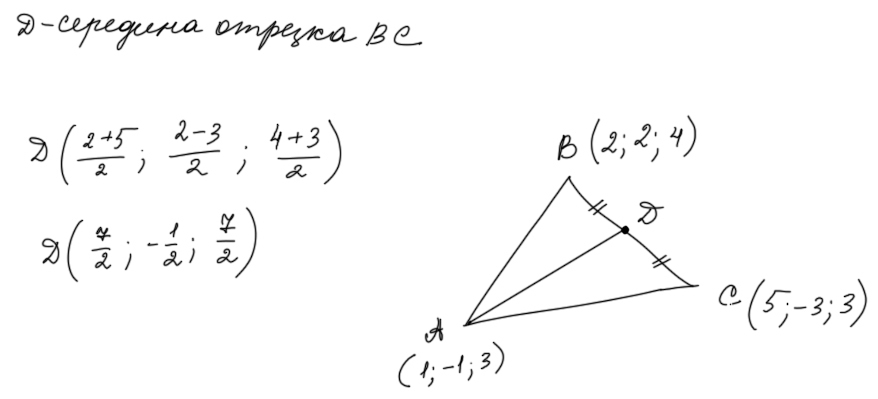 Д-середина отрезка BC
Д(2+5/2; 2-3/2; 4+3/2)
Д(7/2; -1/2; 7/2)
B(2; 2; 4)
Д
C(5; -3; 3)
A
(1; -1; 3)